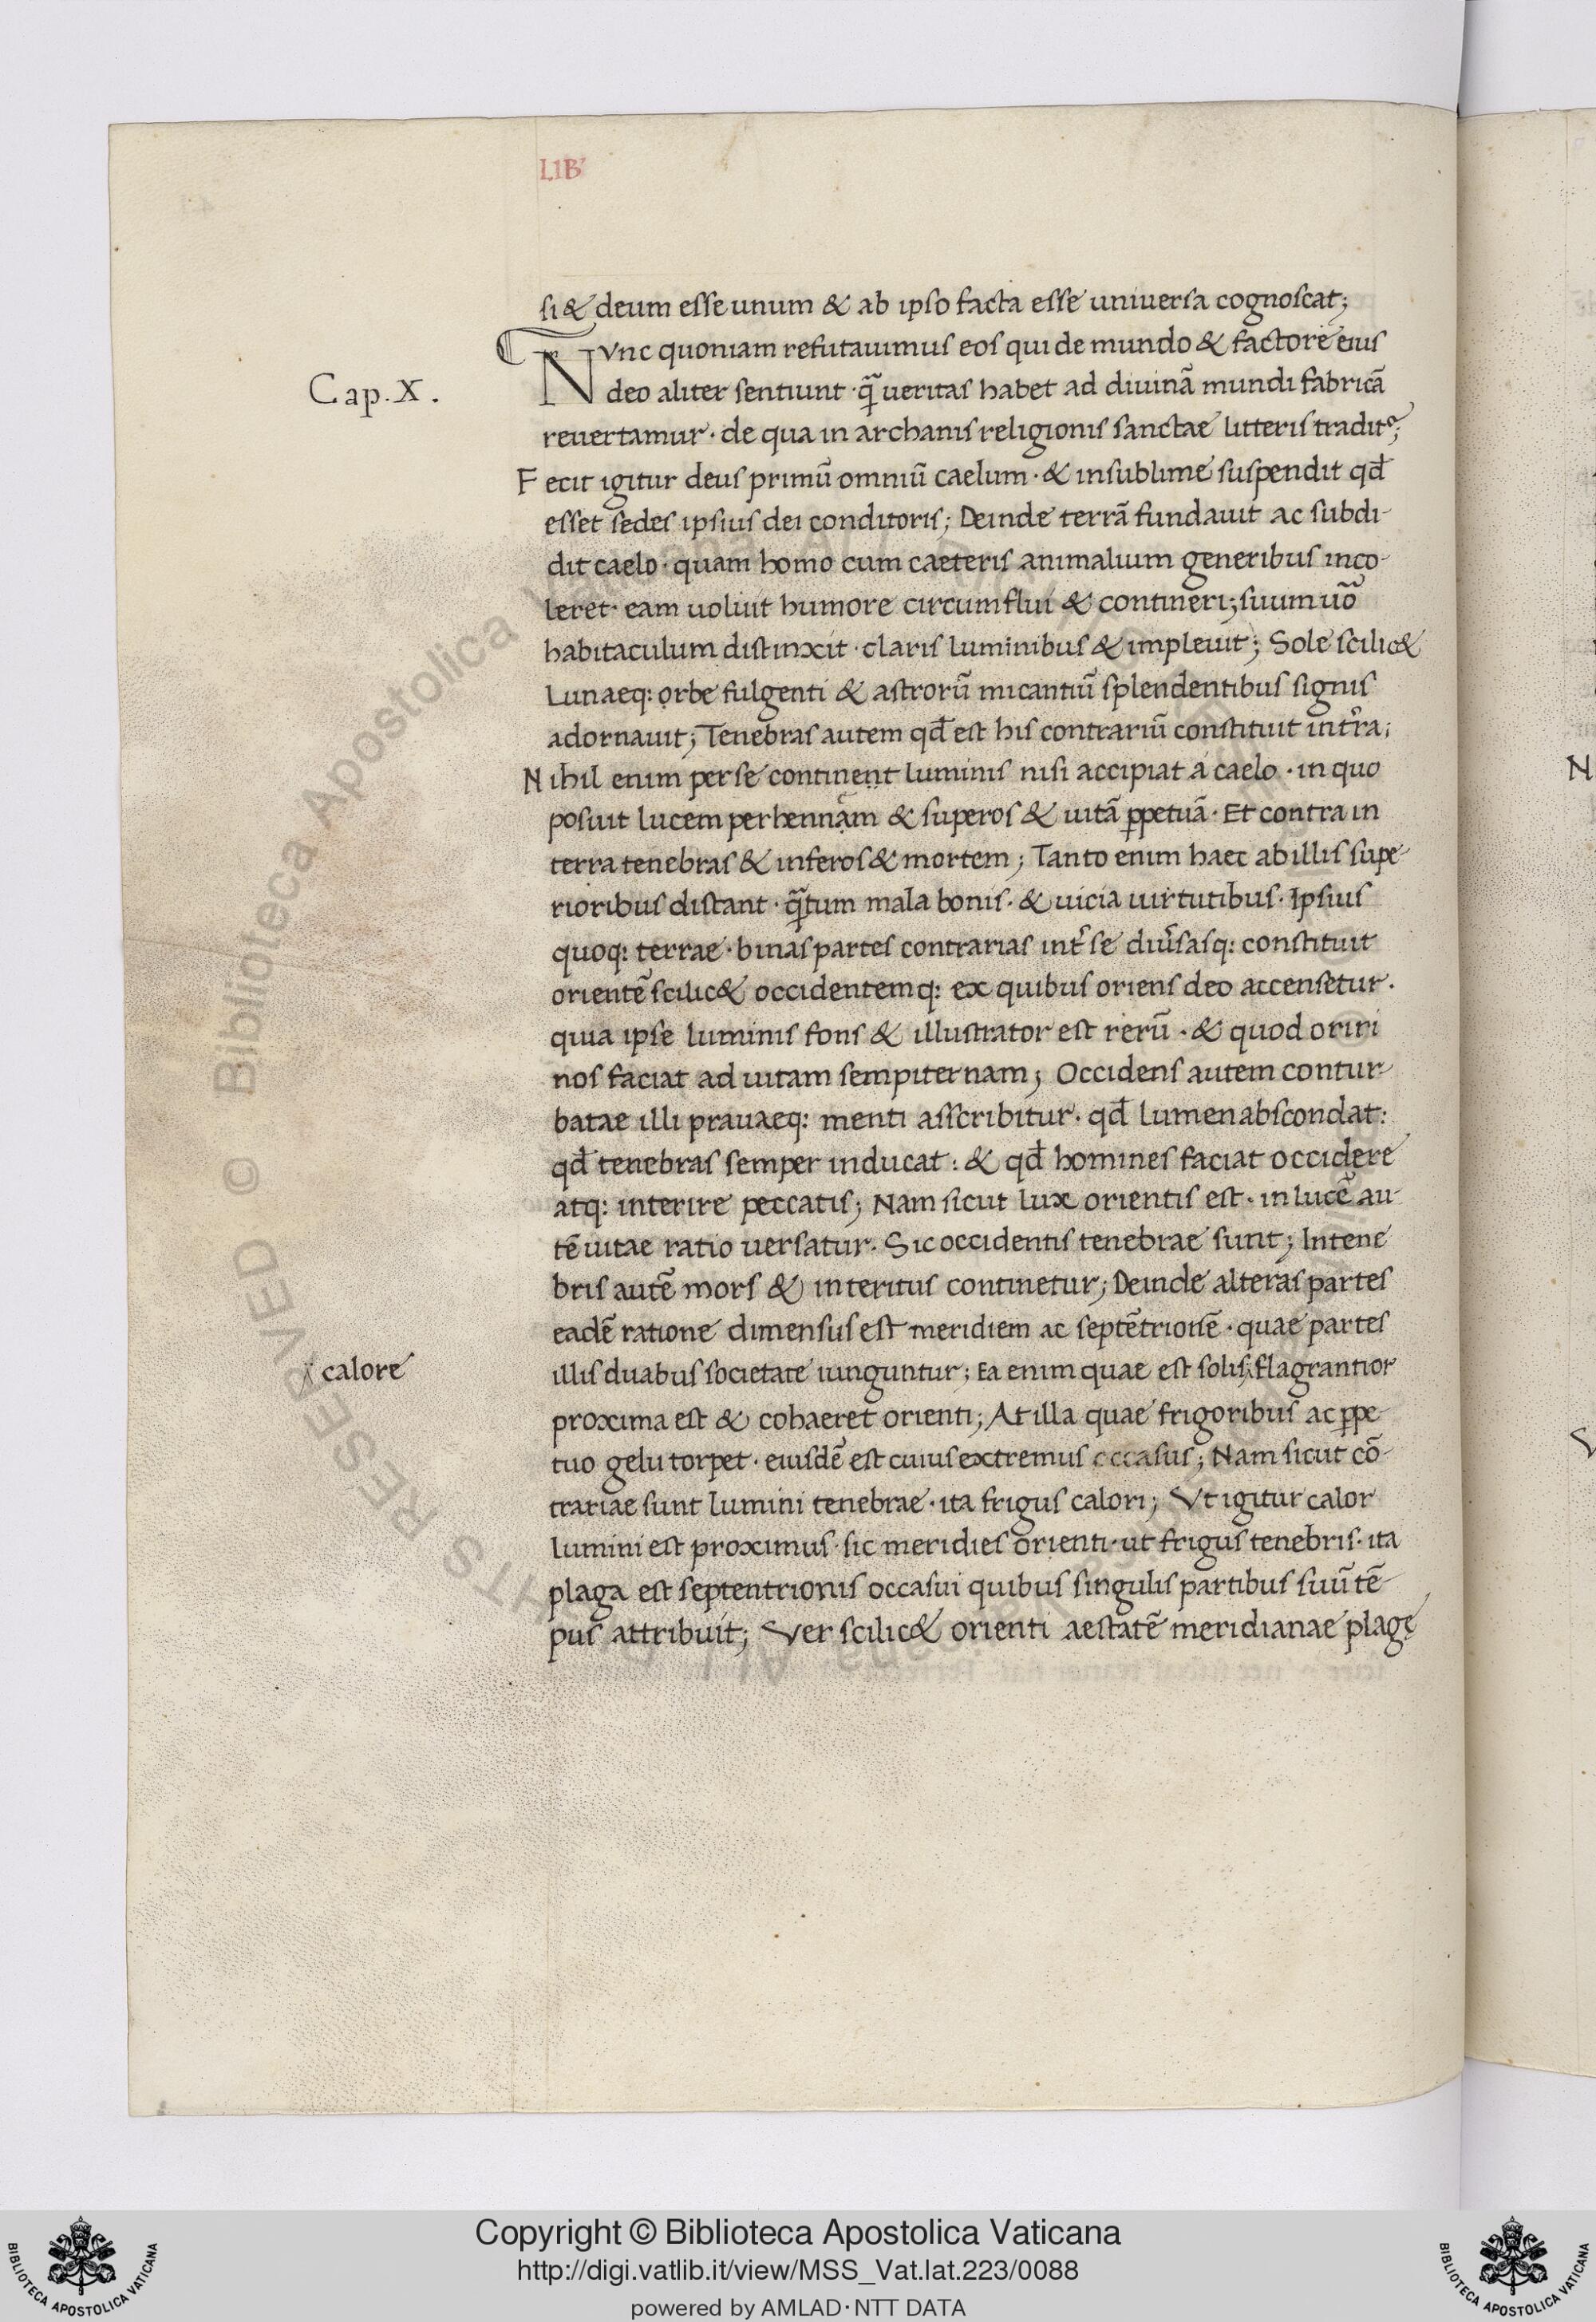 LIB
si & deum esse unum & ab ipso facta esse universa cognoscat;
Nvnc quoniam refutauimus eos qui de mundo & factore eius
Cap. X.
deo aliter sentiunt · q̃ ueritas habet ad diuinã mundi fabricã
reuertamur · de qua in archanis religionis sanctae litteris tradit᷒;
Fecit igitur deus primũ omniũ caelum · & insublime suspendit qđ
esset sedes ipsius dei conditoris; Deinde terrã fundauit ac subdi-
dit caelo · quam homo cum caeteris animalium generibus inco-
leret · eam uoluit humore circumflui & contineri; suum uõ
habitaculum distinxit · claris luminibus & impleuit; Sole scilic&
Lunaeq: orbe fulgenti & astrorũ micantiũ splendentibus signis
adornauit; Tenebras autem qđ est his contrariũ constituit int̃ra;
Nihil enim per se continent luminis nisi accipiat a caelo · in quo
posuit lucem perhennam & superos & uitã ꝑpetuã · Et contra in
terra tenebras & inferos & mortem; Tanto enim haec ab illis supe-
rioribus distant · q̃tum mala bonis · & uicia uirtutibus · Ipsius
quoq: terrae · binas partes contrarias int̃ se diũsasq: constituit
orientẽ scilic& occidentemq: ex quibus oriens deo accensetur ·
quia ipse luminis fons & illustrator est rerũ · & quod oriri
nos faciat ad uitam sempiternam; Occidens autem contur-
batae illi prauaeq: menti asscribitur · qđ lumen abscondat:
qđ tenebras semper inducat: & qđ homines faciat occidere
atq: interire peccatis; Nam sicut lux orientis est · in lucẽ au-
tẽ uitae ratio uersatur · Sic occidentis tenebrae sunt; In tene
bris autẽ mors & interitus continetur; Deinde alteras partes
eadẽ ratione dimensus est meridiem ac septẽtrionẽ · quae partes
calore
illis duabus societate iunguntur; Ea enim quae est solis flagrantior
proxima est & cohaeret orienti; At illa quae frigoribus ac ꝑpe-
tuo gelu torpet · eiusdẽ est cuius extremus occasus; Nam sicut cõ-
trariae sunt lumini tenebrae · ita frigus calori; Vt igitur calor
lumini est proximus · sic meridies orienti · ut frigus tenebris · ita
plaga est septentrionis occasui quibus singulis partibus suũ tẽ-
pus attribuit; Ver scilic& orienti aestatẽ meridianae plagę
Copyright © Biblioteca Apostolica Vaticana
http://digi.vatlib.it/view/MSS_Vat.lat.223/0088
powered by AMLAD·NTT DATA